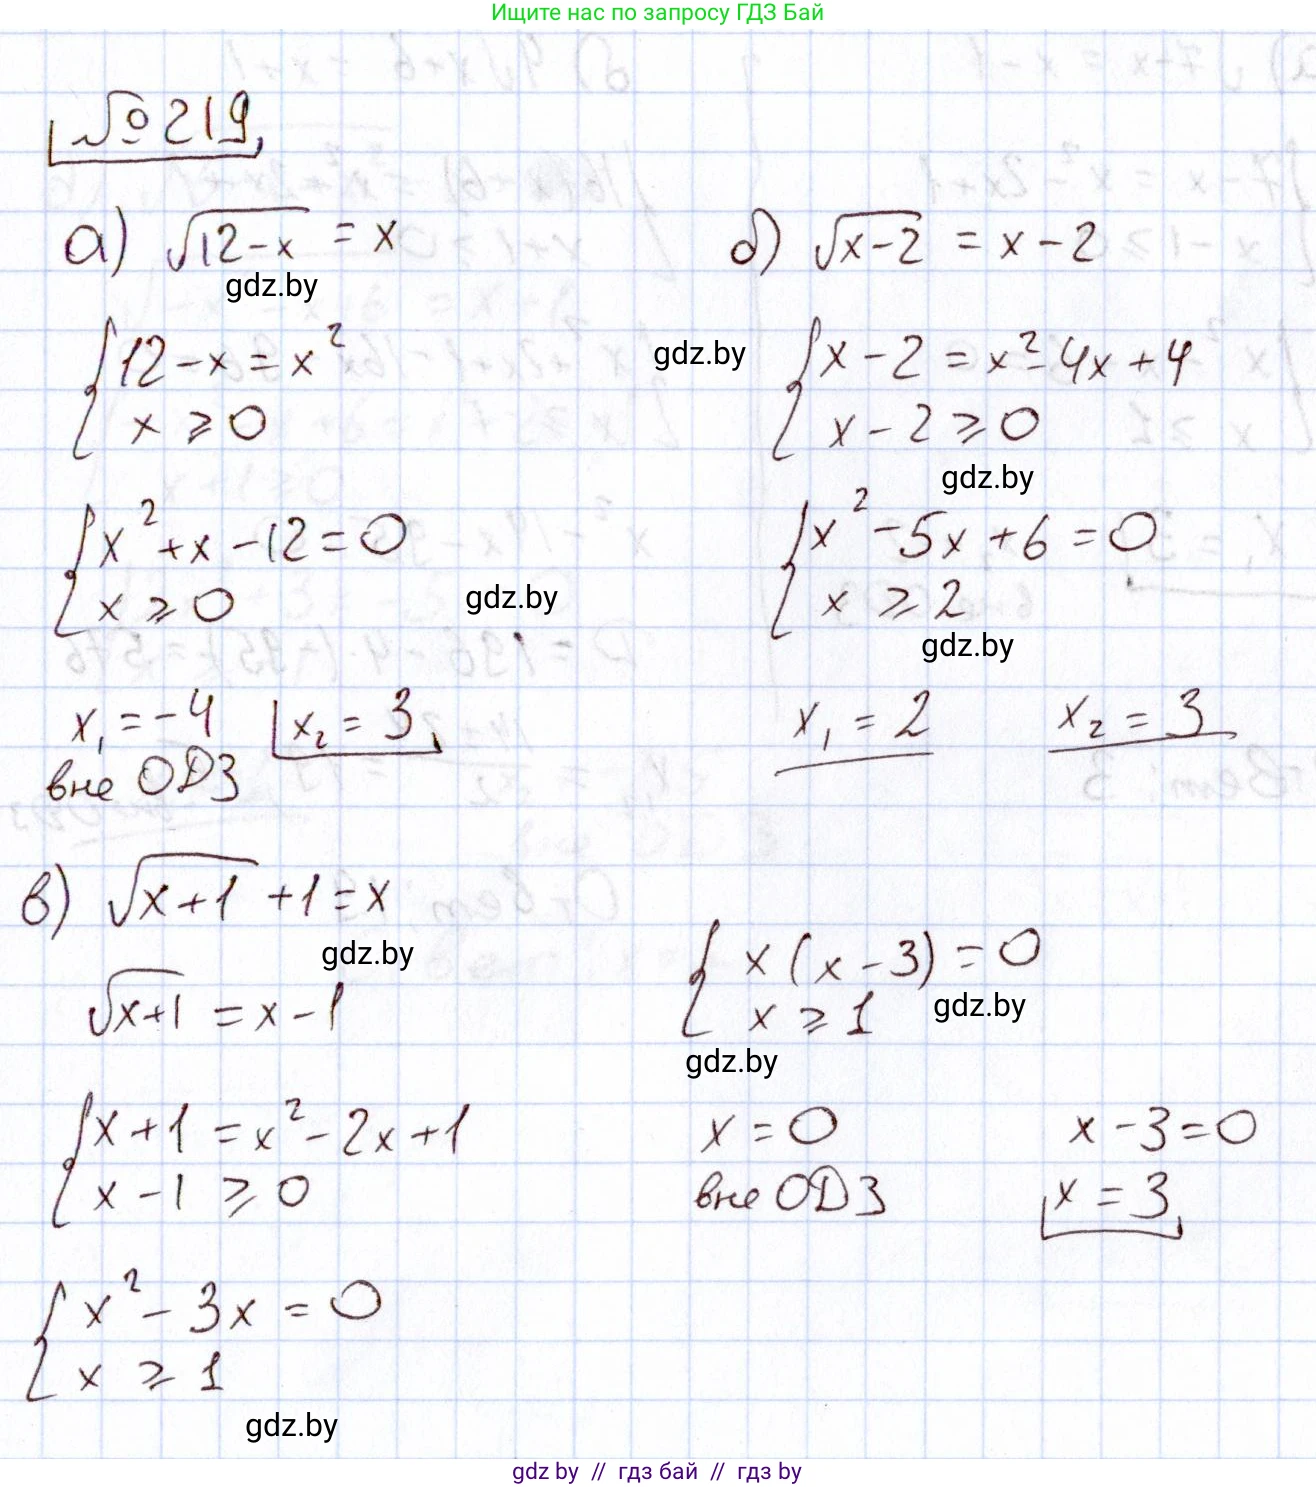 Ищите нас по запросу ГДЗ Бай
№219
а) √(12-x) = x
gdz.by
{ 12-x = x²
x ≥ 0
{ x² + x - 12 = 0
x ≥ 0
gdz.by
x₁ = -4   x₂ = 3
вне ОДЗ
б) √(x-2) = x - 2
gdz.by
{ x - 2 = x² - 4x + 4
x - 2 ≥ 0
gdz.by
{ x² - 5x + 6 = 0
x ≥ 2
gdz.by
x₁ = 2   x₂ = 3
в) √(x+1) + 1 = x
gdz.by
√(x+1) = x - 1
{ x + 1 = x² - 2x + 1
x - 1 ≥ 0
{ x² - 3x = 0
x ≥ 1
gdz.by
{ x (x - 3) = 0
x ≥ 1
gdz.by
gdz.by
x = 0   x - 3 = 0
вне ОДЗ   x = 3
gdz by // гдз бай // гдз by